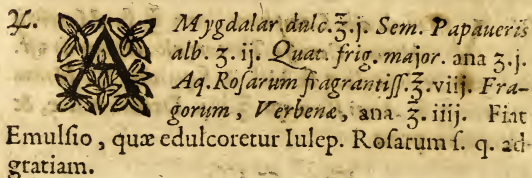 ℞. AMygdalar. dulc. ℥. j. Sem. Papaueris
alb. ʒ. ij. Quat. frig. major. ana ʒ. j.
Aq. Roſarum fragrantiſſ. ℥. viij. Fra-
gorum, Verbenæ, ana ℥. iiij. Fiat
Emulſio, quæ edulcoretur Iulep. Roſatum ſ. q. ad
gratiam.